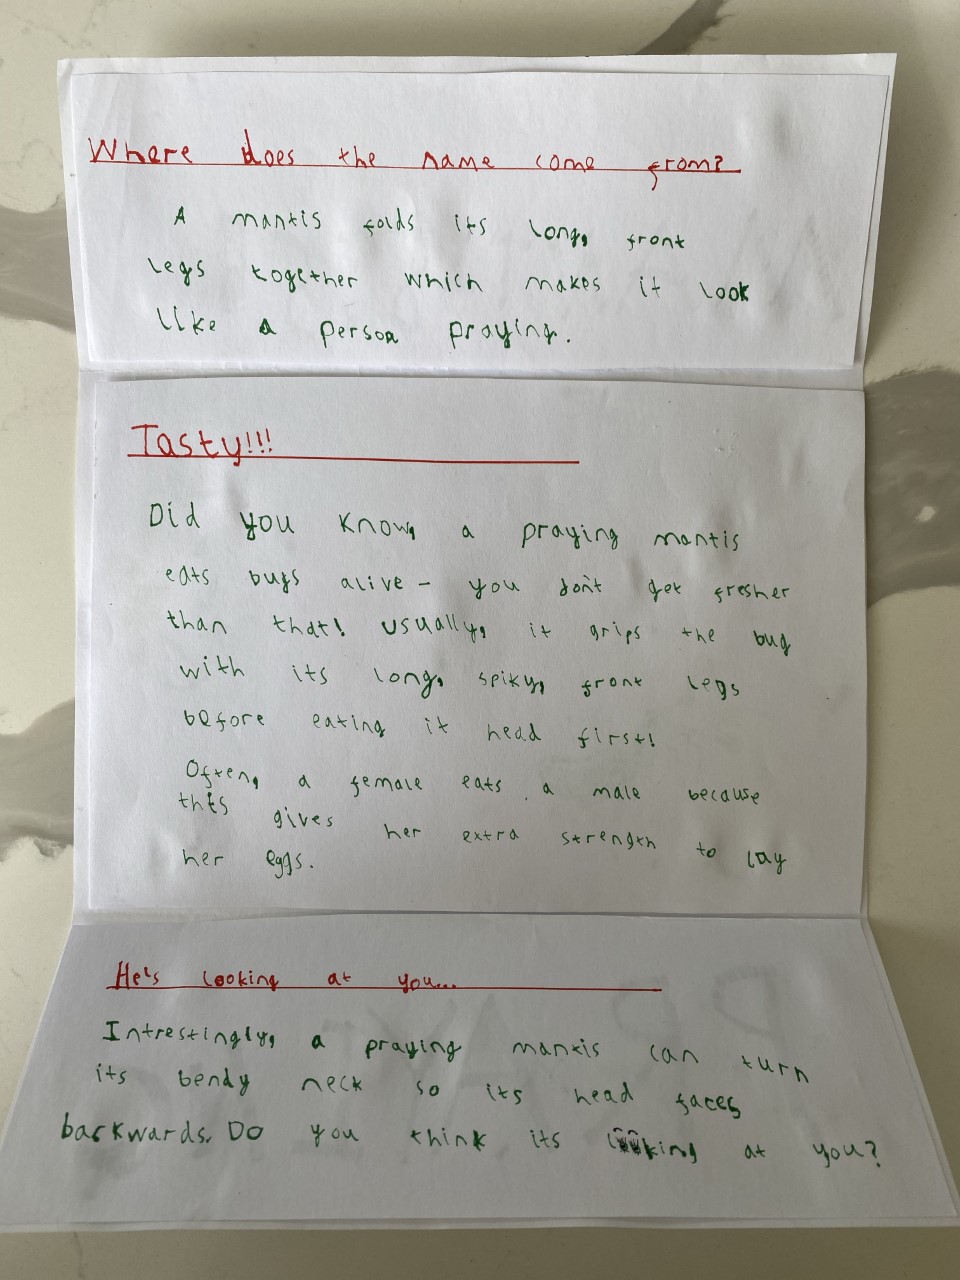 Where does the name come from?
A mantis folds its long, front
legs together which makes it look
like a person praying.
Tasty!!!
Did you know, a praying mantis
eats bugs alive - you don't get fresher
than that! usually, it grips the bug
with its long, spiky, front legs
before eating it head first!
Often, a female eats a male because
this gives her extra strength to lay
her eggs.
He's looking at you...
Intrestingly, a praying mantis can turn
its bendy neck so its head faces
backwards. Do you think its looking at you?